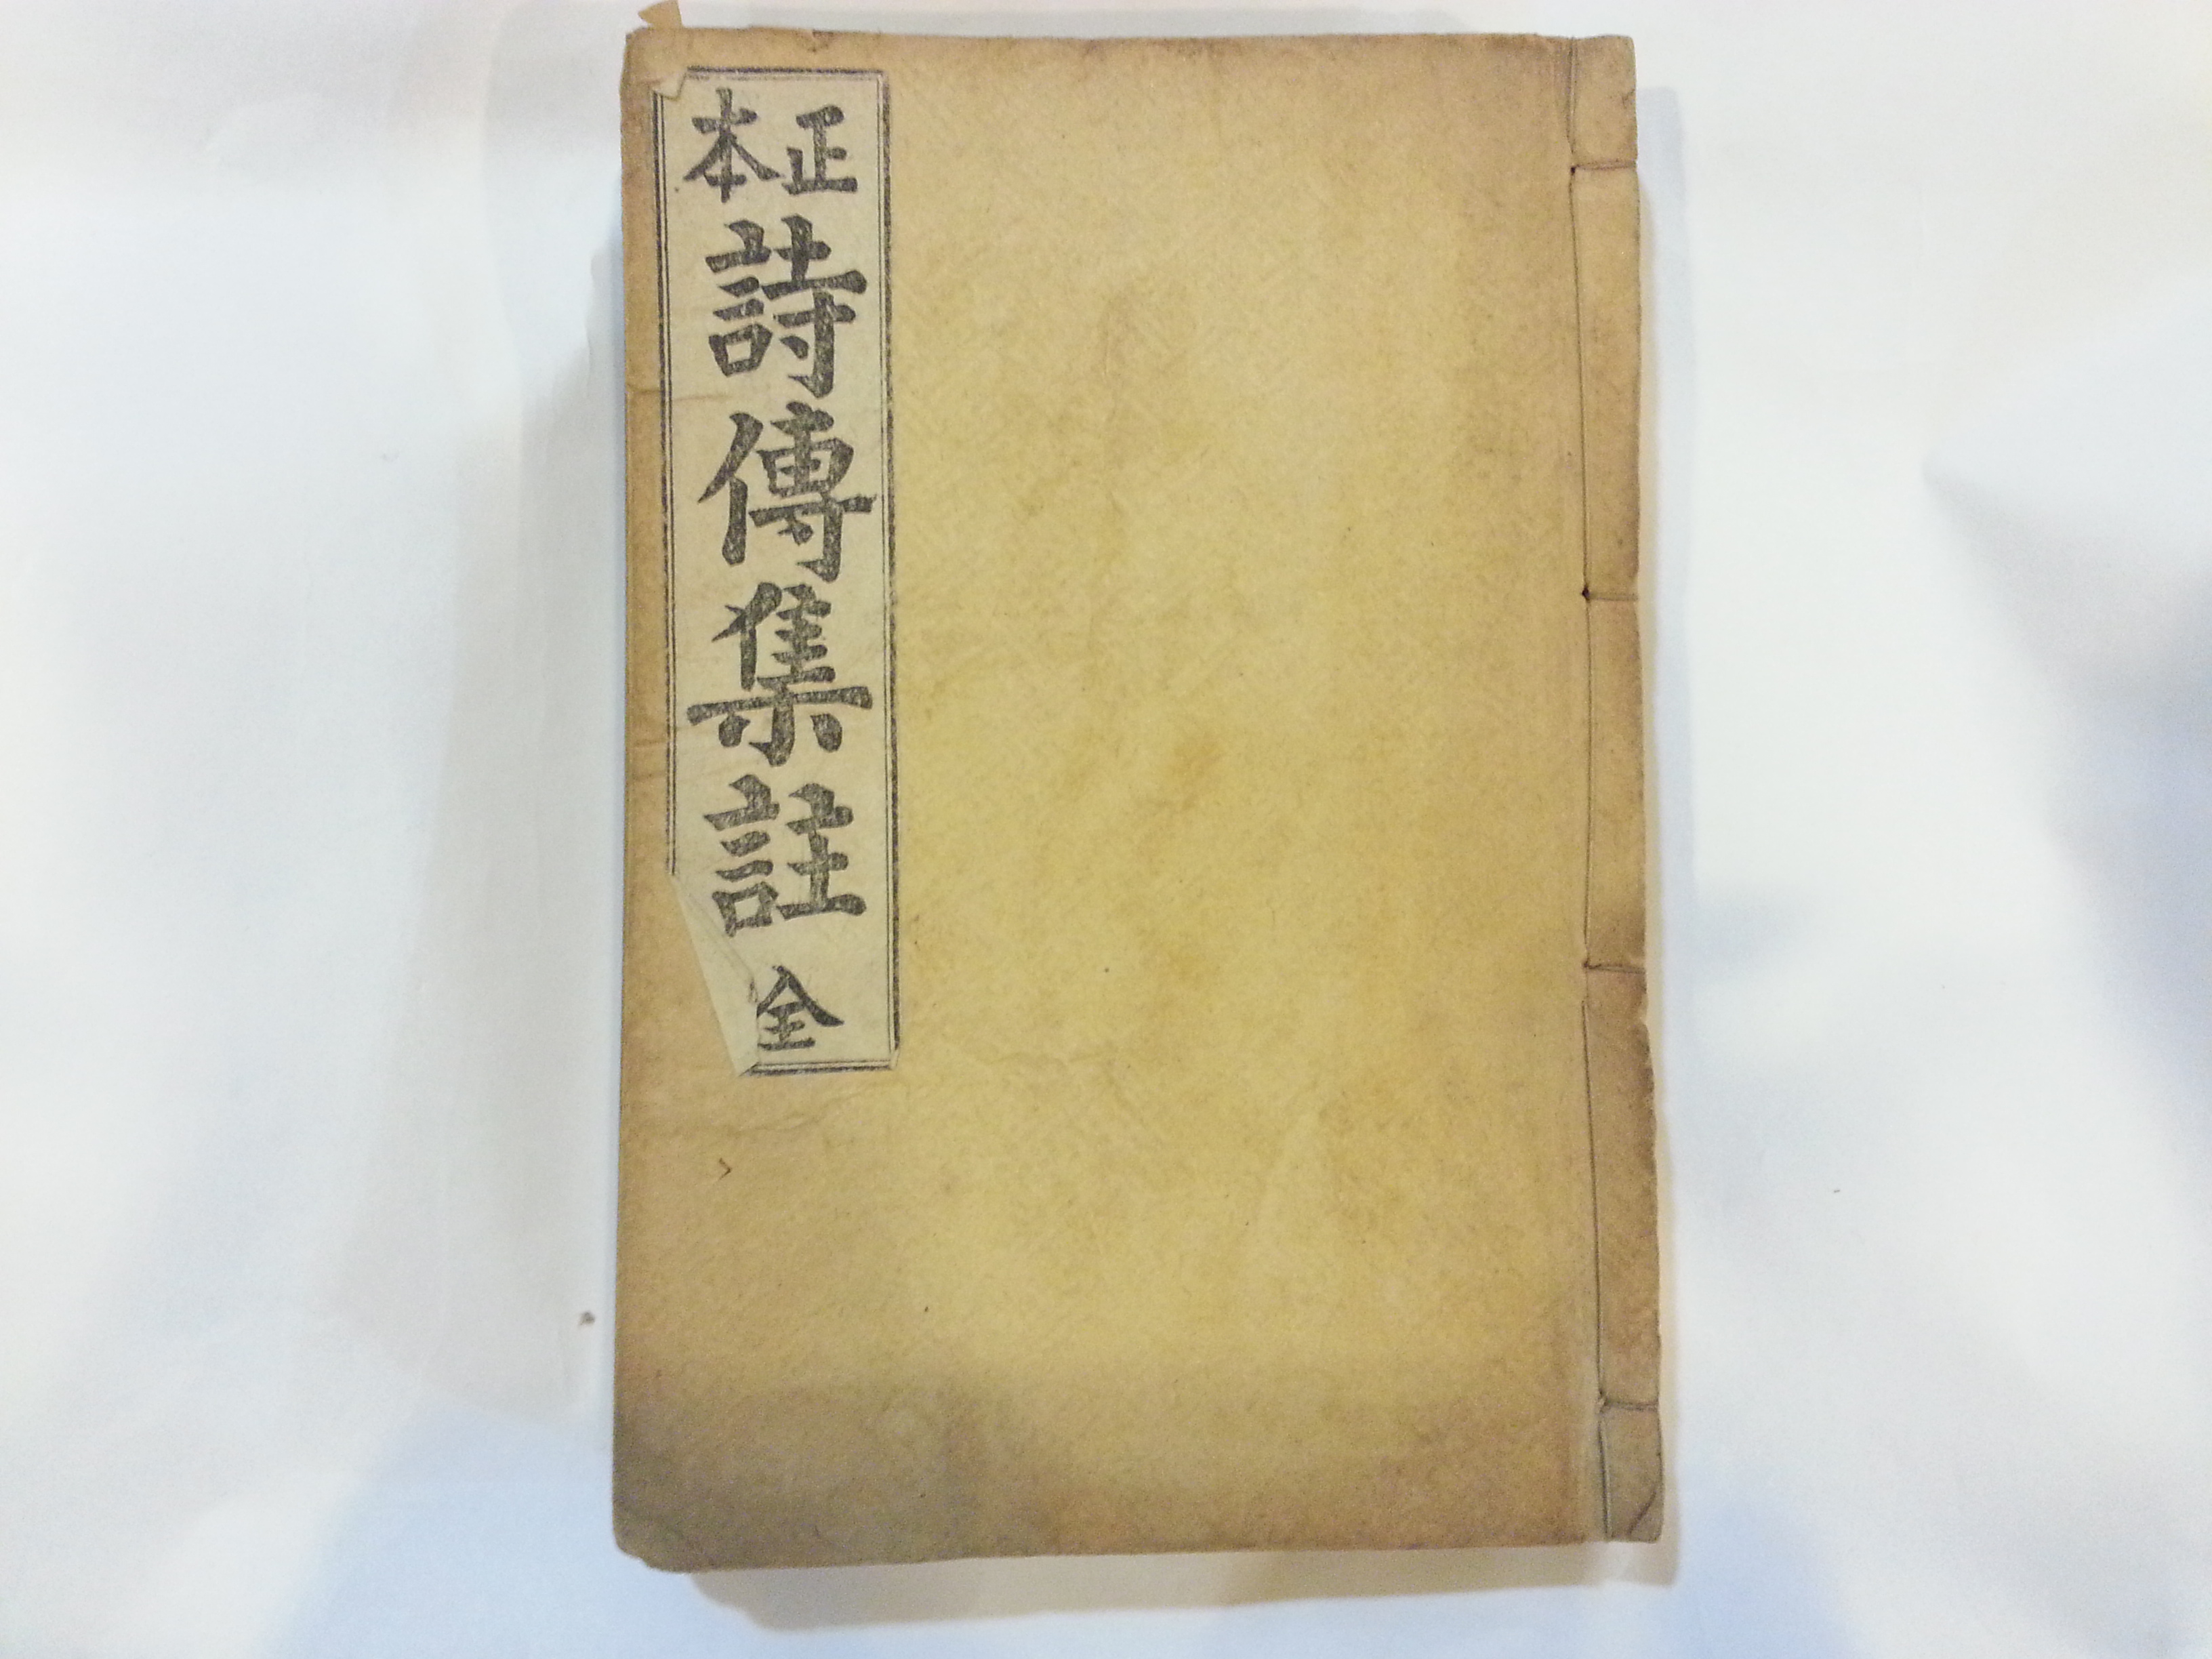 正本
詩傳集註 全